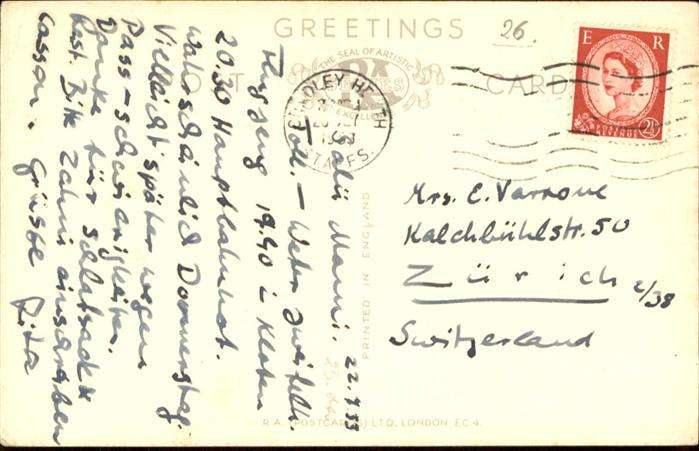 GREETINGS
26.
POST CARD
THE SEAL OF ARTISTIC
RA
EXCELLENCE
E R
POSTAGE
REVENUE
2½
BRADLEY HEATH
STAFFS.
Mami, 22.9.53
toll. – Wetter zweifelh.
Flugzeug 19.40 i Kloten
20.30 Hauptbahnhof.
Wahrscheinlich Donnerstag.
Vielleicht später wegen
Pass-schwierigkeiten.
Danke für
Bitte Zahni
lassen. Grüsse Rita
PRINTED IN ENGLAND
R.A. (POSTCARDS) LTD., LONDON E.C.4.
Mrs. E. Varrone
Kalchbühlstr. 50
Zürich 2/38
Switzerland